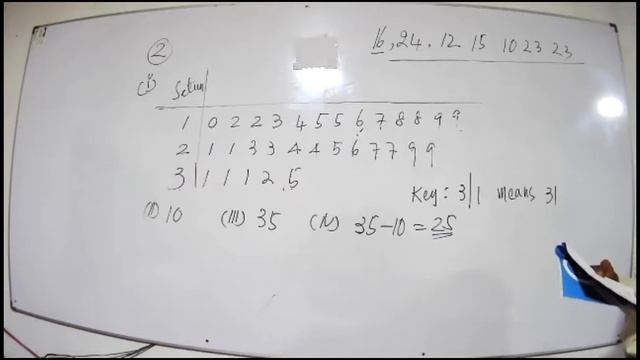 ② 16, 24. 12 15 10 23 23
(i)
1 | 0 2 2 3 4 5 5 6 7 8 8 9 9
2 | 1 1 3 3 4 4 5 6 7 7 9 9
3 | 1 1 1 2 5
Key: 3|1 means 31
(II) 10 (III) 35 (IV) 35-10 = 25